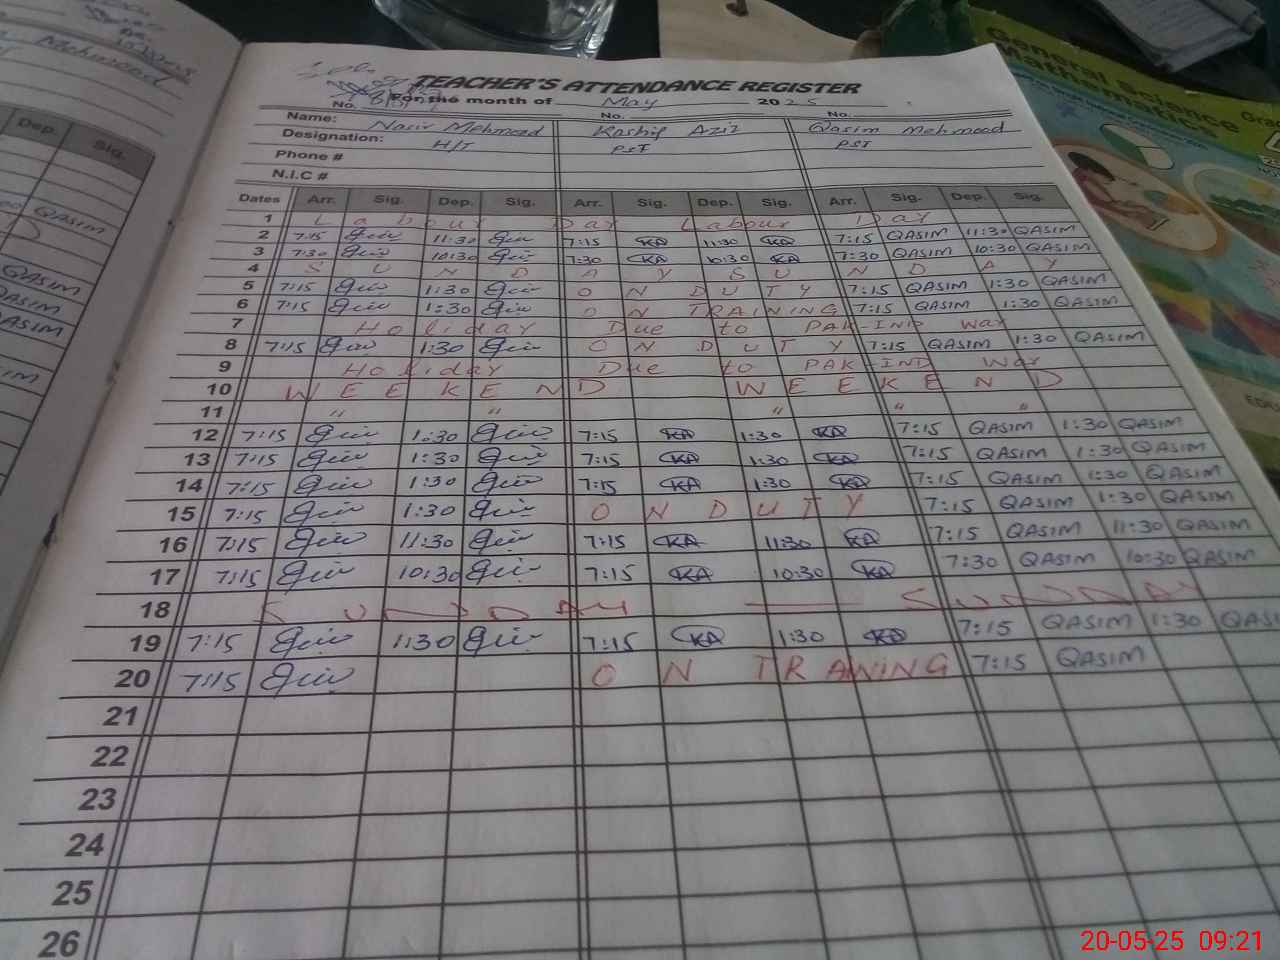 TEACHER'S ATTENDANCE REGISTER
No. For the month of May 2025
No. No.
Name: Nasir Mehmood Kashif Aziz Qasim Mehmood
Designation: H/T PST PST
Phone #
N.I.C #
Dates Arr. Sig. Dep. Sig. Arr. Sig. Dep. Sig. Arr. Sig. Dep. Sig.
1 Labour Day Labour Day
2 7:15 11:30 7:15 KA 11:30 KA 7:15 QASIM 11:30 QASIM
3 7:30 10:30 7:30 KA 10:30 KA 7:30 QASIM 10:30 QASIM
4 SUNDAY SUNDAY
5 7:15 1:30 ON DUTY 7:15 QASIM 1:30 QASIM
6 7:15 1:30 ON TRAINING 7:15 QASIM 1:30 QASIM
7 Holiday Due to PAK-IND War
8 7:15 1:30 ON DUTY 7:15 QASIM 1:30 QASIM
9 Holiday Due to PAK-IND War
10 WEEKEND WEEKEND
11 " " " " "
12 7:15 1:30 7:15 KA 1:30 KA 7:15 QASIM 1:30 QASIM
13 7:15 1:30 7:15 KA 1:30 KA 7:15 QASIM 1:30 QASIM
14 7:15 1:30 7:15 KA 1:30 KA 7:15 QASIM 1:30 QASIM
15 7:15 1:30 ON DUTY 7:15 QASIM 1:30 QASIM
16 7:15 11:30 7:15 KA 11:30 KA 7:15 QASIM 11:30 QASIM
17 7:15 10:30 7:15 KA 10:30 KA 7:30 QASIM 10:30 QASIM
18 SUNDAY — SUNDAY
19 7:15 1:30 7:15 KA 1:30 KA 7:15 QASIM 1:30 QASI
20 7:15 ON TRAINING 7:15 QASIM
21
22
23
24
25
26
Mehmood
Dep. Sig.
QASIM
QASIM
QASIM
General Science
Mathematics
20-05-25 09:21